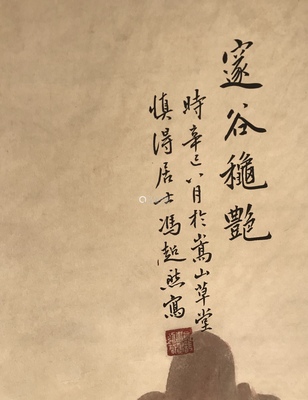 邃谷穐艷
時辛巳八月於嵩山草堂
慎得居士馮超然寫